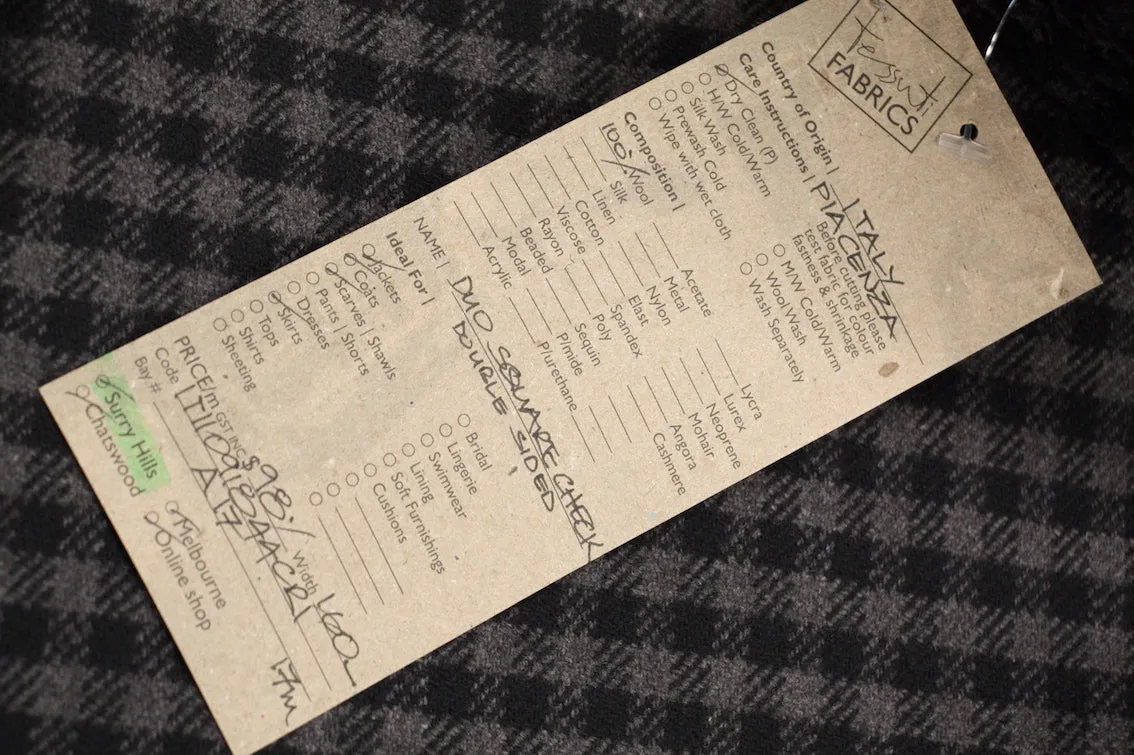 Tessuti
FABRICS
Country of Origin | ITALY
Care Instructions | PIACENZA
Dry Clean (P)
H/W Cold/Warm
Silk Wash
Prewash Cold
Wipe with wet cloth
Before cutting please
test fabric for colour
fastness & shrinkage
M/W Cold/Warm
Wool Wash
Wash Separately
Composition |
100% Wool
Silk
Linen
Cotton
Viscose
Rayon
Beaded
Modal
Acrylic
Acetate
Metal
Nylon
Elast
Spandex
Poly
Sequin
P/mide
P/urethane
Lycra
Lurex
Neoprene
Mohair
Angora
Cashmere
NAME | DUO SQUARE CHECK
DOUBLE SIDED
Ideal For |
Jackets
Coats
Scarves | Shawls
Pants | Shorts
Dresses
Skirts
Tops
Shirts
Sheeting
Bridal
Lingerie
Swimwear
Lining
Soft Furnishings
Cushions
PRICE/m GST INC $98.- Width 160
Code |
Bay # A17 17m
Surry Hills
Chatswood
Melbourne
Online shop